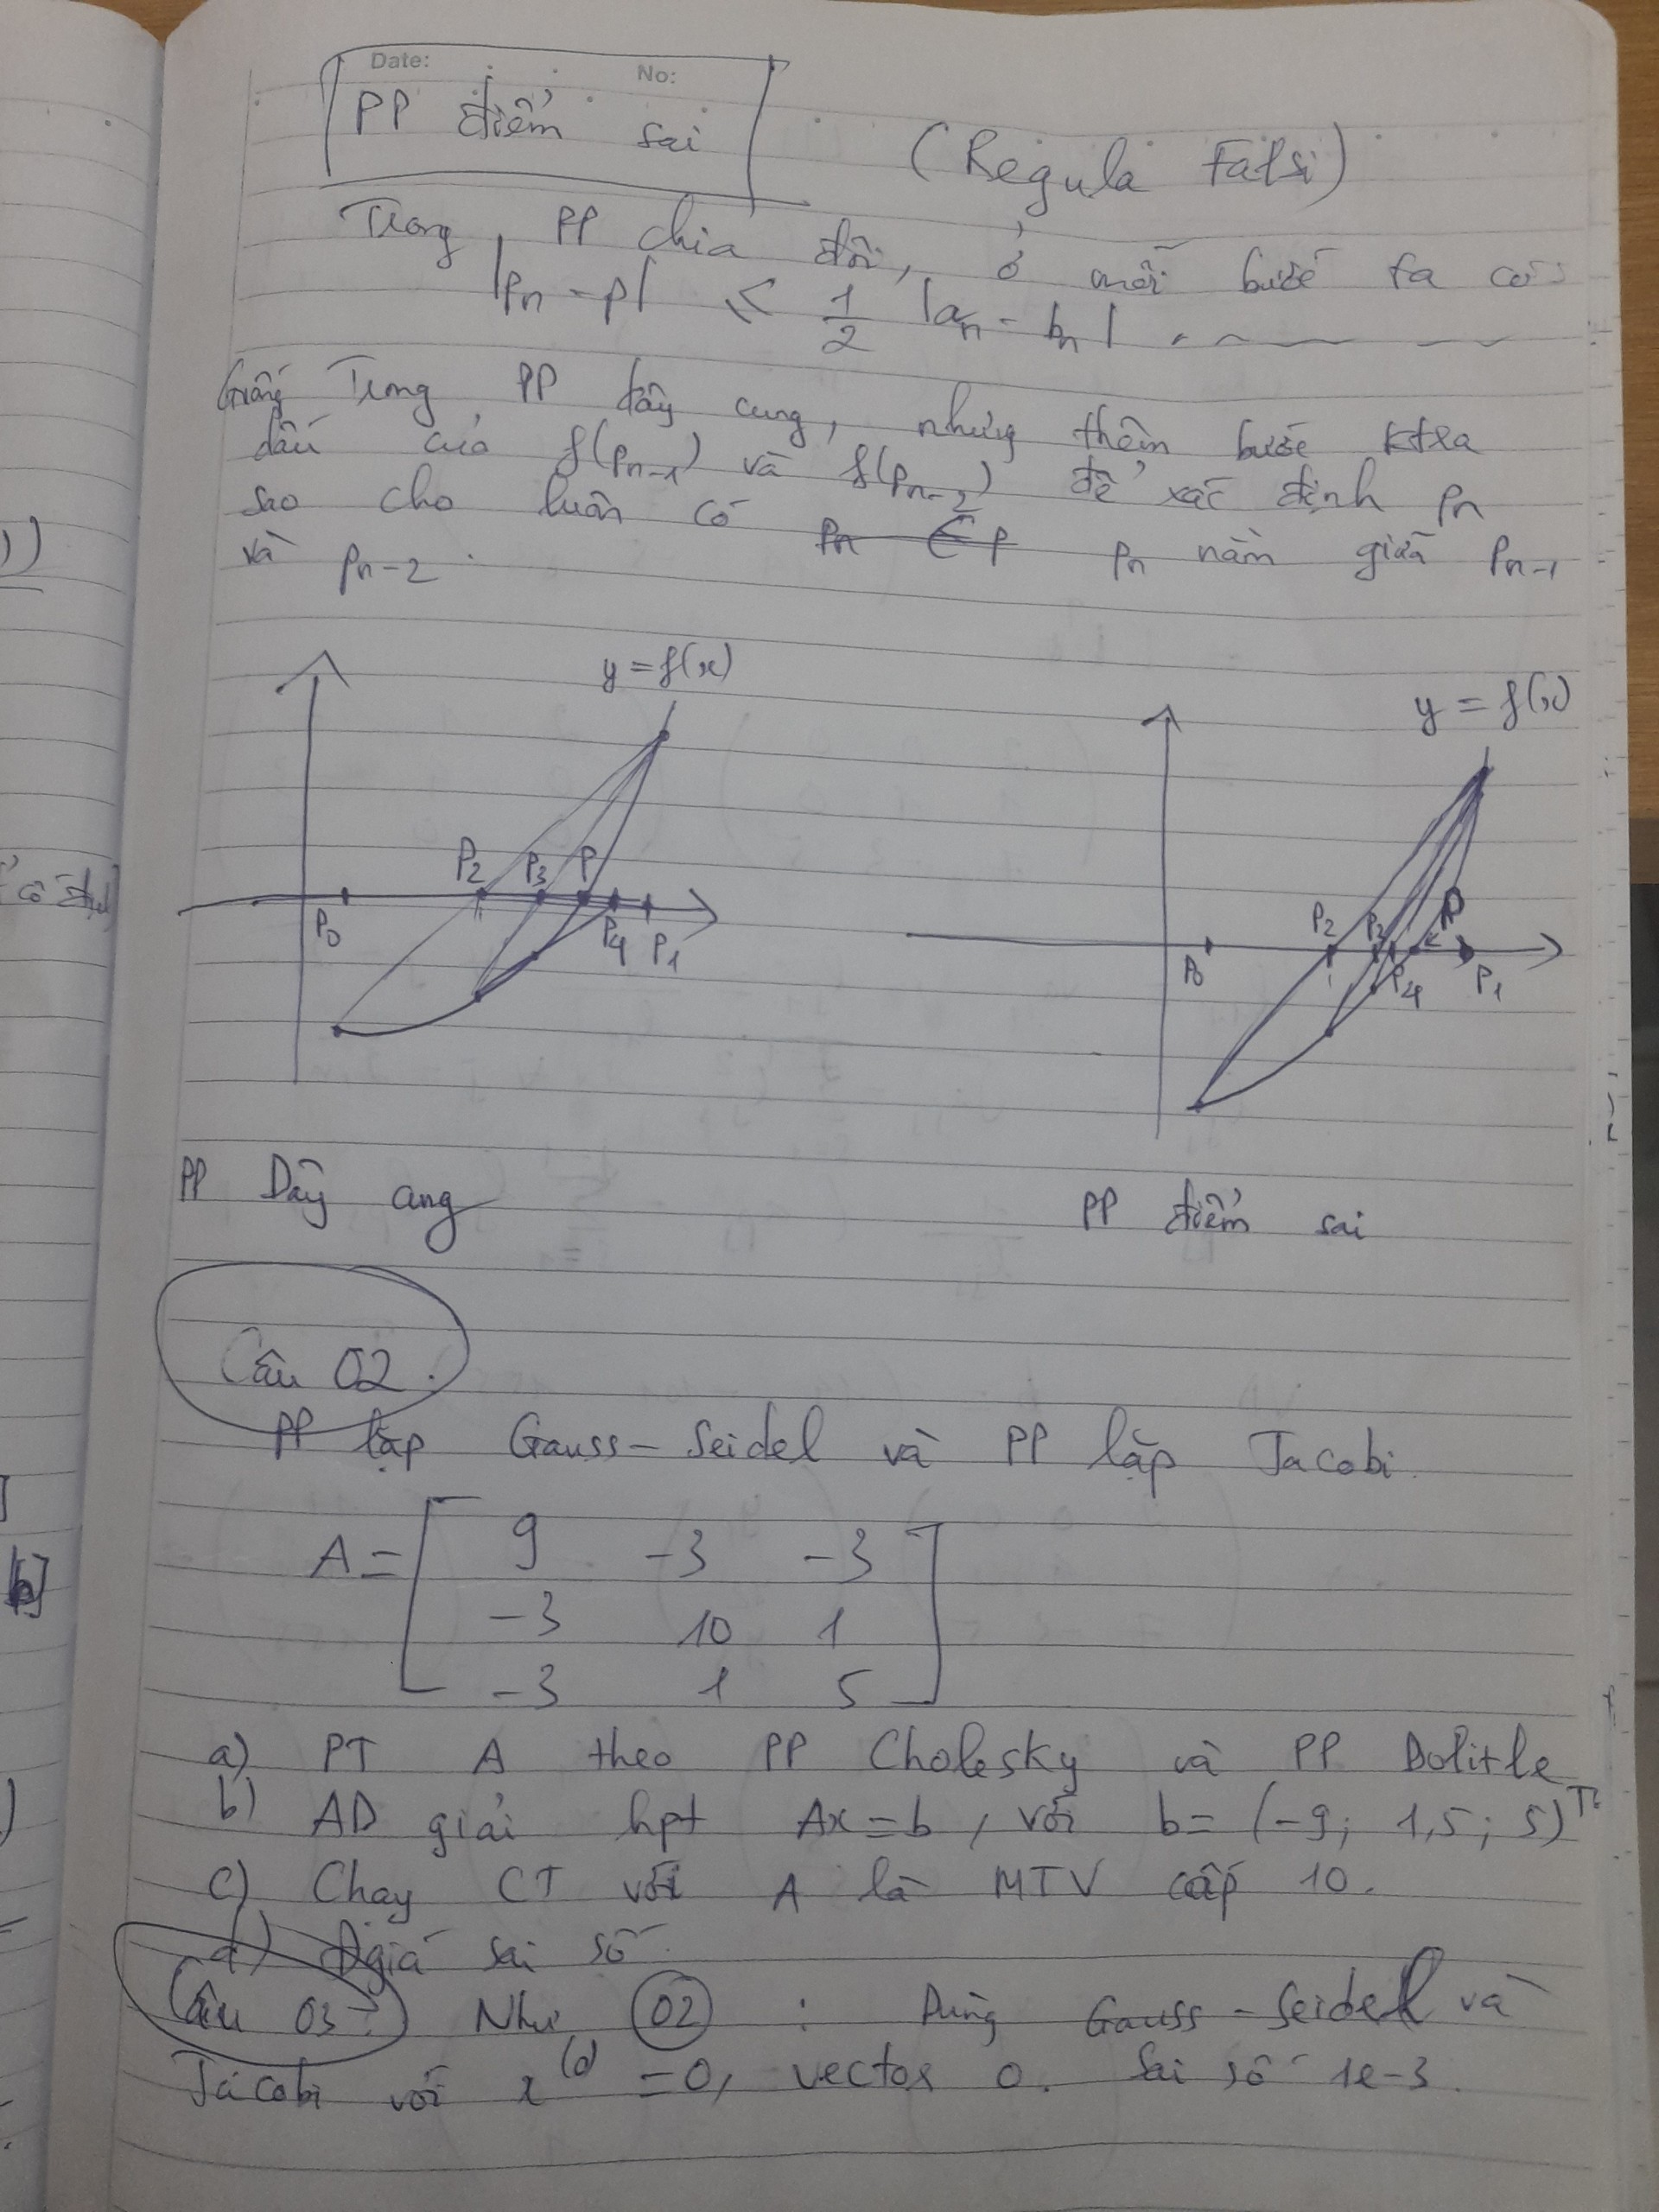 Date: No:
PP điểm sai
(Regula Falsi)
Trong PP chia đôi, ở mỗi bước ta có:
|pn - p| ≤ 1/2 |an - bn|
Giống Trong PP dây cung, nhưng thêm bước ktra
dấu của f(pn-1) và f(pn-2) để xác định pn
sao cho luôn có pn nằm giữa pn-1
và pn-2.
y = f(x)
y = f(x)
P2 P3 P
P0 P4 P1
P2 P3 P
P0 P4 P1
PP Dây cung
PP điểm sai
Câu 02.
PP lặp Gauss-Seidel và PP lặp Jacobi
A = [ 9 -3 -3
-3 10 1
-3 1 5 ]
a) PT A theo PP Cholesky và PP Dolitle
b) AD giải hpt Ax = b, với b = (-9; 1,5; 5)^T
c) Chạy CT với A là MTV cấp 10.
d) Đgiá sai số.
Câu 03: Như 02 : Dùng Gauss-Seidel và
Jacobi với x^(0) = 0, vector 0. Sai số 1e-3.
cố định
b]